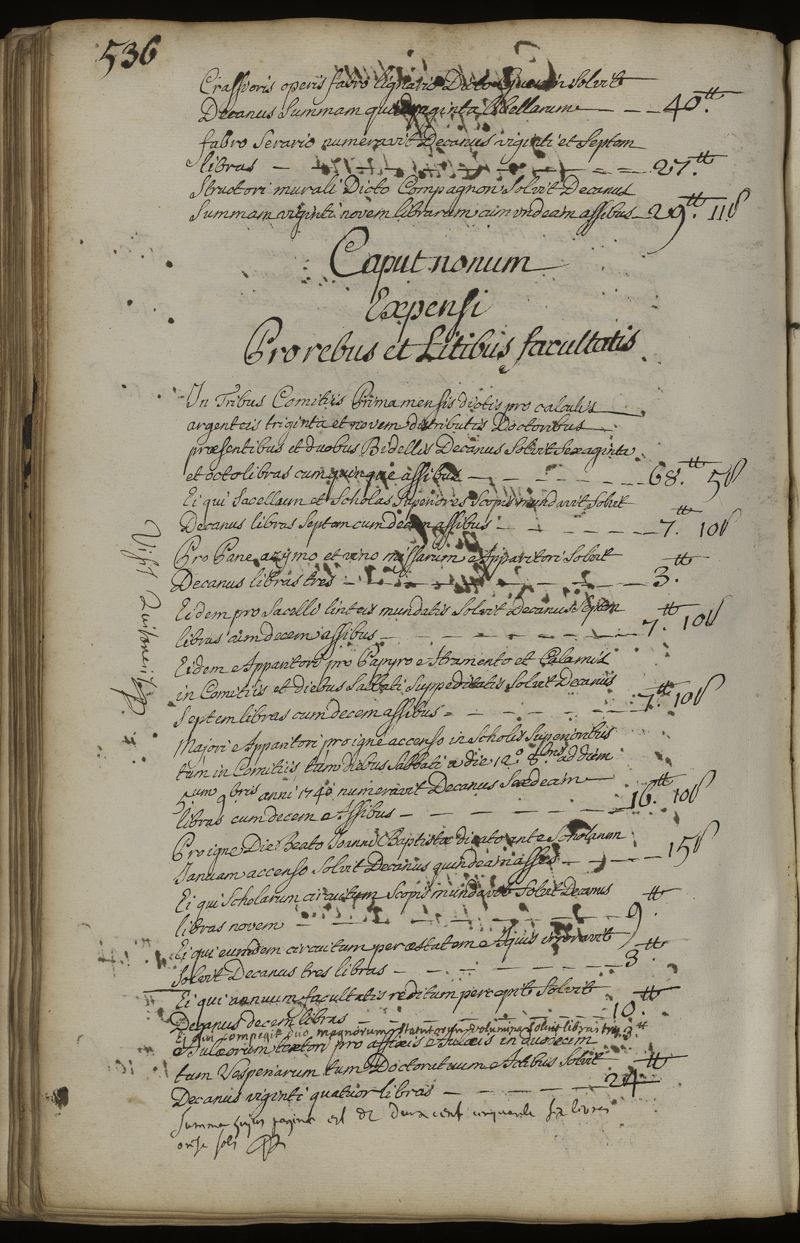 536
Crassioris operis fabro lignario Dicto solvit
Decanus Summam quadraginta libellarum — — 40.tt
fabro Serario numeravit Decanus viginti et Septem
libras — 27.tt
Structori murali Dicto Compagnon Solvit Decanus
Summam viginti novem librarum cum undecim assibus — 29.tt 11s
Caput nonum
Expensi
Pro rebus et Litibus facultatis
In Tribus Comitiis Prima mensis dictis pro calculis
argenteis triginta et novem distributis Doctoribus
præsentibus et duobus Bidellis Decanus Solvit Sexaginta
et octo libras cum quinque assibus — 68.tt 5s
Ei qui Sacellum et Scholas Superiores Scopis mundavit Solvit
Decanus libras Septem cum decem assibus — 7.tt 10s
Pro Pane azymo et vino missarum Apparitori Solvit
Decanus libras tres — 3.tt
Eidem pro Sacelli linteis mundatis Solvit Decanus Septem
libras cum decem assibus — 7.tt 10s
Eidem Apparitori pro Papyro Atramento et Calamis
in Comitiis et diebus Sabbati Suppeditatis Solvit Decanus
Septem libras cum decem assibus — 7.tt 10s
Majori Apparitori pro igne accenso in Scholis Superioribus
tum in Comitiis tum diebus Sabbati a die 12.o 8bris ad diem
5um 9bris anni 1740 numeravit Decanus Sexdecim
libras cum decem Assibus — 16.tt 10s
Pro igne Die Beato Joanni Baptistæ dicato ante Scholarum
Januam accenso Solvit Decanus quindecim asses — 15s
Ei qui Scholarum circuitum Scopis mundavit Solvit Decanus
libras novem — 9.tt
Ei qui eumdem circuitum per æstatem Aquis irroravit
Solvit Decanus tres libras — 3.tt
Ei qui annuum facultatis reditum percepit Solvit
Decanus decem libras — 10.tt
Ei qui compegit duo magnorum Statutorum volumina Solvit libras tres 3.tt
Aulæorum textori pro affixis Aulæis in duodecim
tum Vesperiarum tum Doctoratuum Actibus Solvit
Decanus viginti quatuor libras — 24tt
Summa hujus paginæ est de deux cent cinquante six livres
onze sols